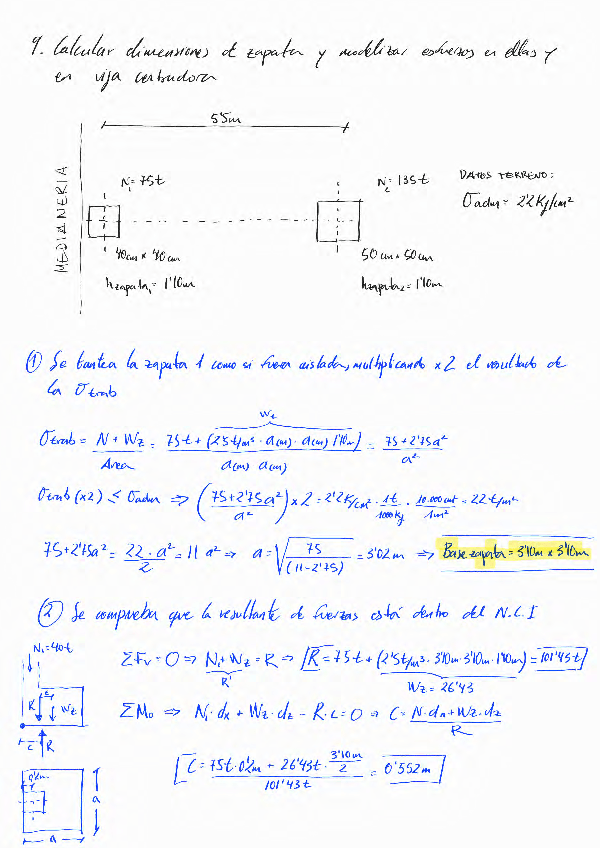 9. Calcular dimensiones de zapata y modelizar esfuerzos en ellas y
en viga centradora
5'5m
MEDIANERIA
N1= 75t
N2= 135t
DATOS TERRENO:
σadm= 2'2 Kg/cm²
40cm x 40cm
50cm x 50cm
hzapata1= 1'10m
hzapata2= 1'10m
① Se tantea la zapata 1 como si fuera aislada, multiplicando x2 el resultado de
la σtrab
Wz
σtrab = N + Wz / Area = 75t + (2'5t/m³ · a(m) · a(m) 1'10m) / a(m) a(m) = 75 + 2'75a² / a²
σtrab (x2) ≤ σadm ⇒ (75+2'75a² / a²) x 2 = 2'2Kg/cm² · 1t / 1000Kg · 10.000cm² / 1m² = 22t/m²
75+2'75a² = 22 · a² / 2 = 11 a² ⇒ a = √(75 / (11-2'75)) = 3'02m ⇒ Base zapata = 3'10m x 3'10m
② Se comprueba que la resultante de fuerzas está dentro del N.C.I
N1=40t
ΣFv = 0 ⇒ N1+Wz = R ⇒ R = 75t + (2'5t/m³ · 3'10m · 3'10m · 1'10m) = 101'43t
R'
Wz = 26'43
R' e Wz
c R
ΣMo ⇒ N1 · dn + Wz · dz - R · c = 0 ⇒ C = N · dn + Wz · dz / R
C = 75t · 0'2m + 26'43t · 3'10m / 2 / 101'43t = 0'552m
0'2m
a
a